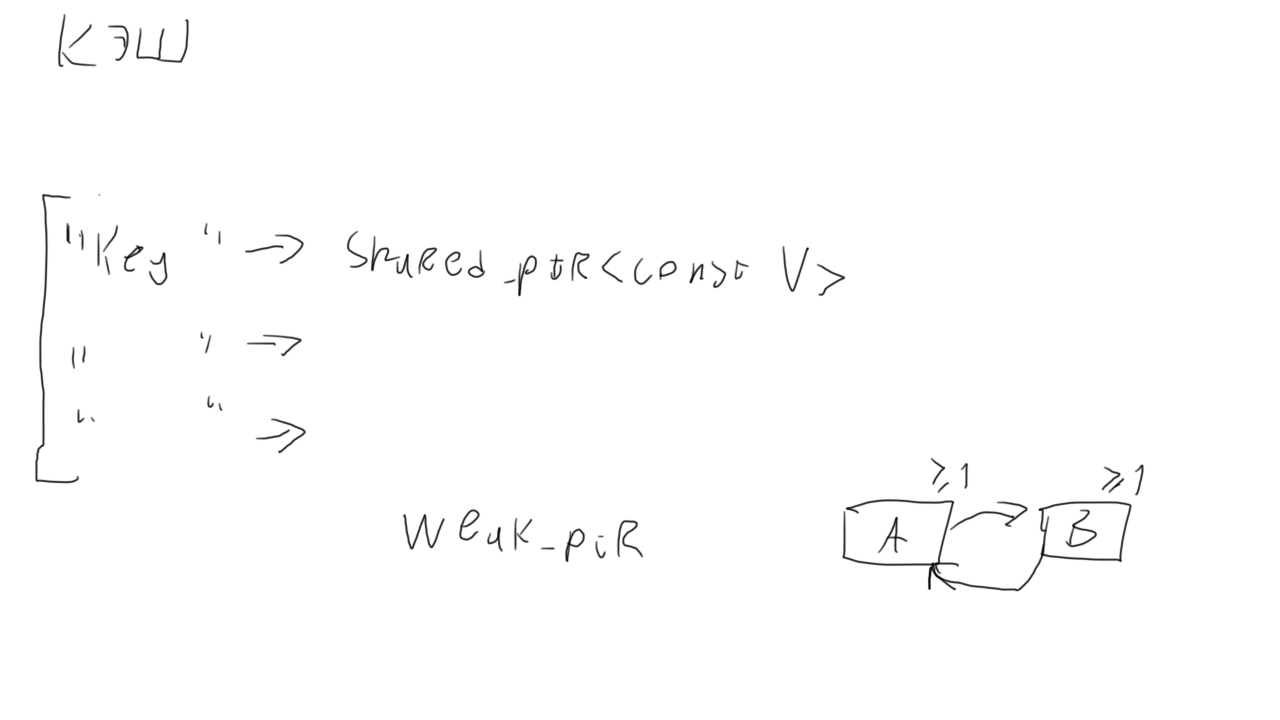 КЭШ
"Key" → Shared_ptr<const V>
" " →
" " →
≥1 ≥1
Weak_ptr A B